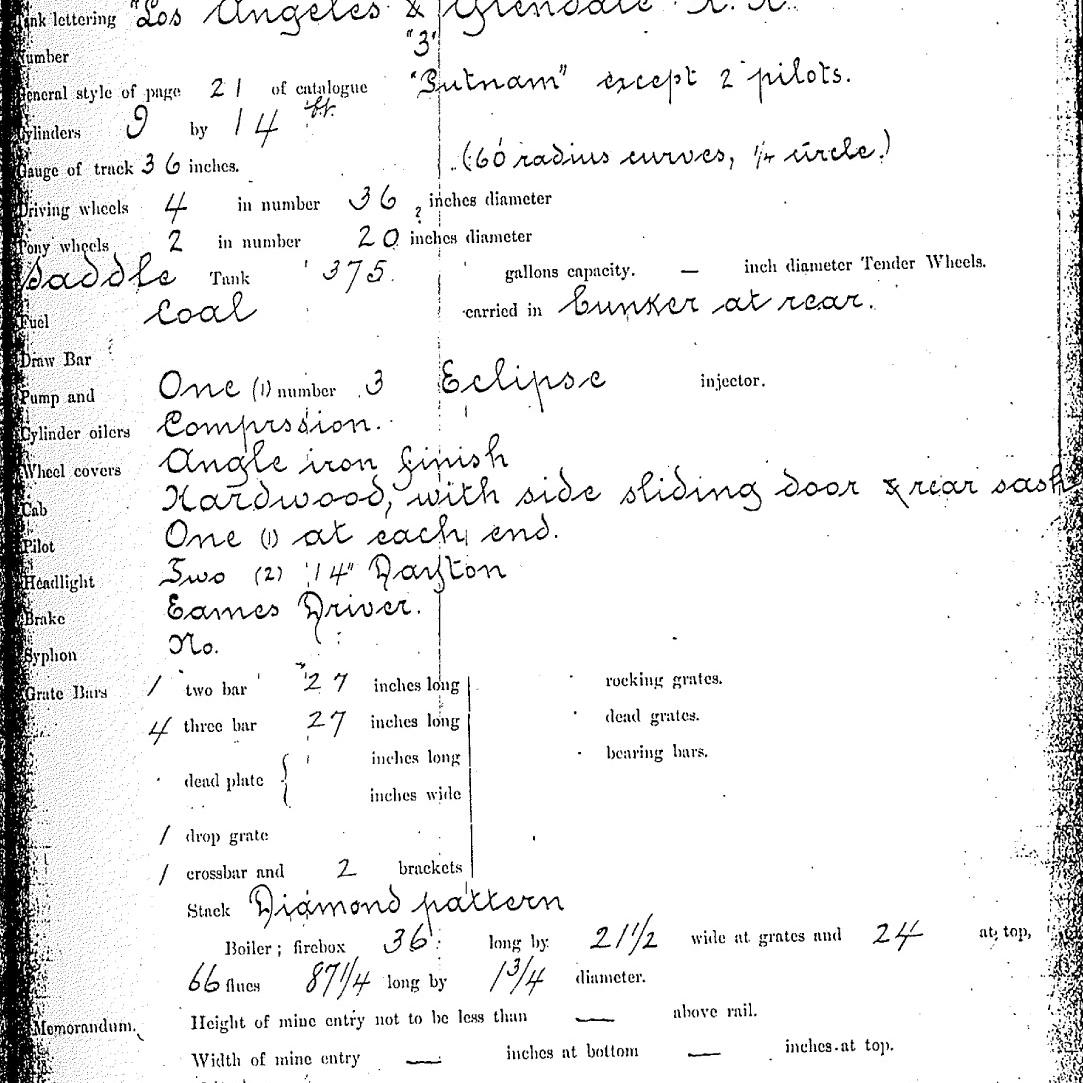 Tank lettering "Los Angeles & Glendale R. R.
Number "3"
General style of page 21 of catalogue "Putnam" except 2 pilots.
Cylinders 9 by 14
Gauge of track 36 inches. (60 radius curves, 1/4 circle.)
Driving wheels 4 in number 36 inches diameter
Pony wheels 2 in number 20 inches diameter
Saddle Tank 375 gallons capacity. — inch diameter Tender Wheels.
Fuel Coal carried in bunker at rear.
Draw Bar
Pump and One (1) number 3 Eclipse injector.
Cylinder oilers Comprssion.
Wheel covers Angle iron finish
Cab Hardwood, with side sliding door & rear sash
Pilot One (1) at each end.
Headlight Two (2) 14" Dayton
Brake Eames Driver.
Syphon No.
Grate Bars 1 two bar 27 inches long rocking grates.
4 three bar 27 inches long dead grates.
inches long bearing bars.
dead plate {
inches wide
1 drop grate
1 crossbar and 2 brackets
Stack Diamond pattern
Boiler; firebox 36 long by 21 1/2 wide at grates and 24 at top,
66 flues 87 1/4 long by 1 3/4 diameter.
Memorandum. Height of mine entry not to be less than — above rail.
Width of mine entry — inches at bottom — inches at top.